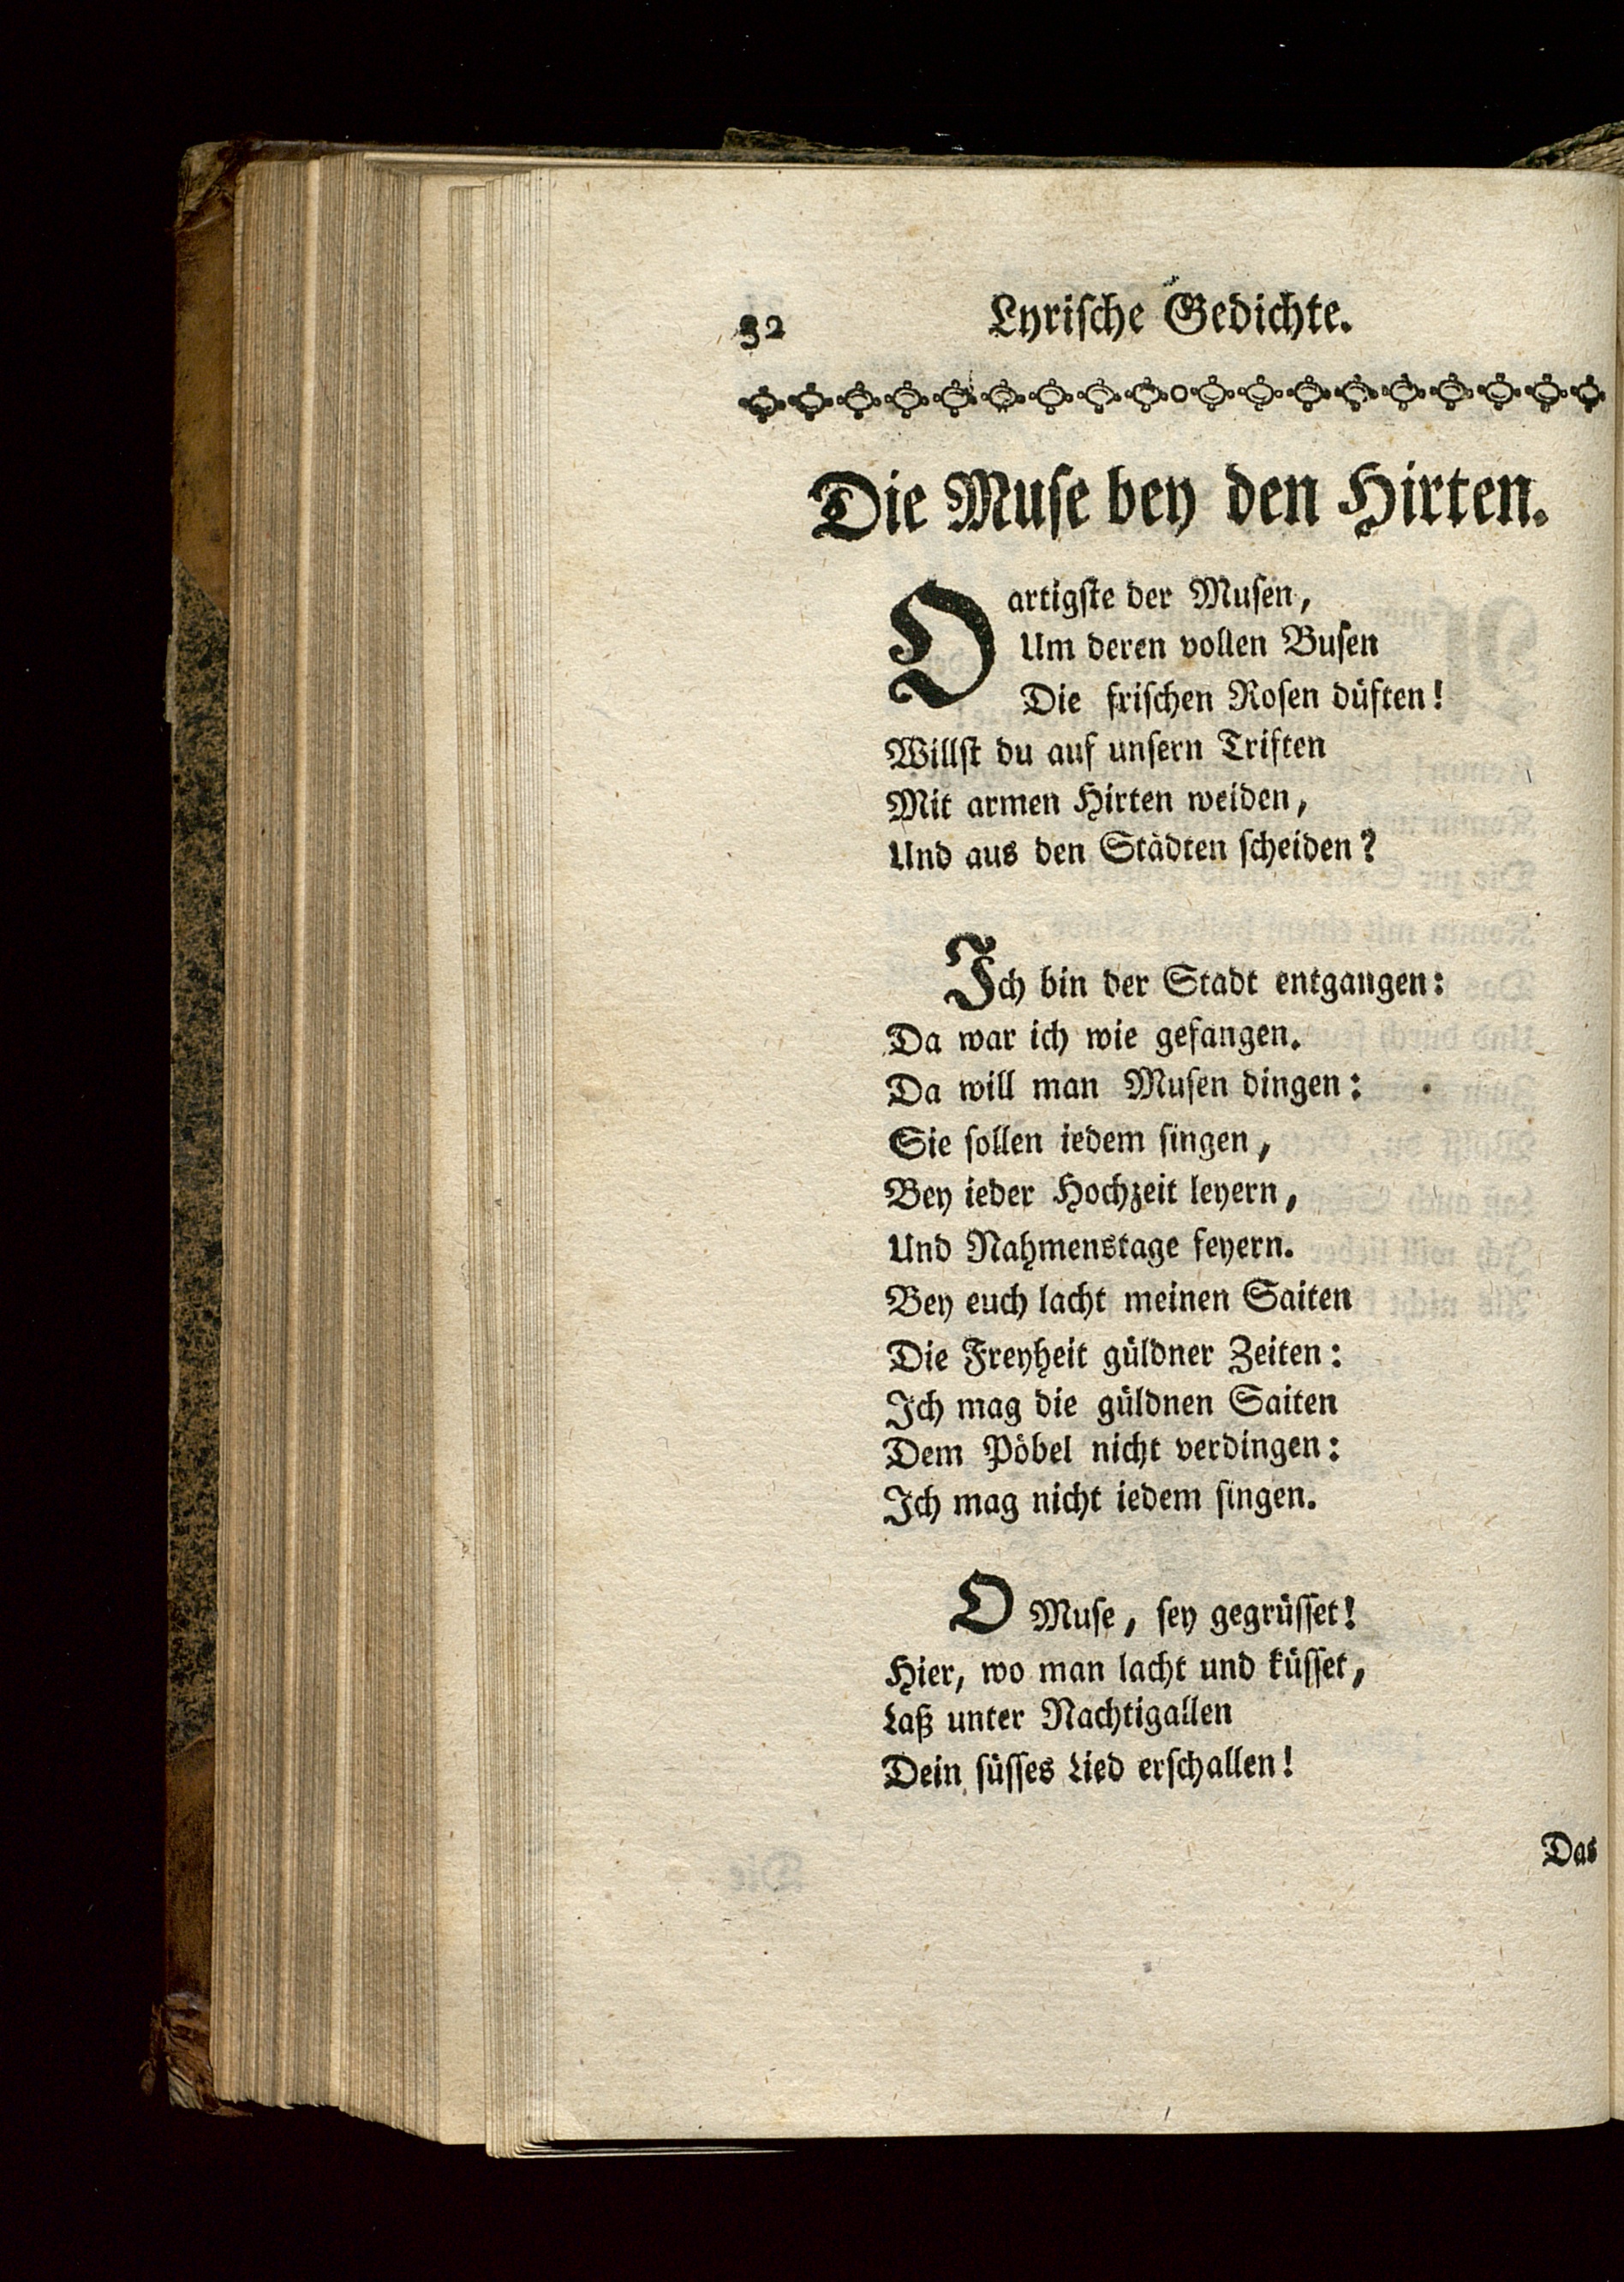 32 Lyrische Gedichte.
Die Muse bey den Hirten.
O artigste der Musen,
Um deren vollen Busen
Die frischen Rosen düften!
Willst du auf unsern Triften
Mit armen Hirten weiden,
Und aus den Städten scheiden?
Ich bin der Stadt entgangen:
Da war ich wie gefangen.
Da will man Musen dingen:
Sie sollen iedem singen,
Bey ieder Hochzeit leyern,
Und Nahmenstage feyern.
Bey euch lacht meinen Saiten
Die Freyheit güldner Zeiten:
Ich mag die güldnen Saiten
Dem Pöbel nicht verdingen:
Ich mag nicht iedem singen.
O Muse, sey gegrüsset!
Hier, wo man lacht und küsset,
Laß unter Nachtigallen
Dein süsses Lied erschallen!
Das